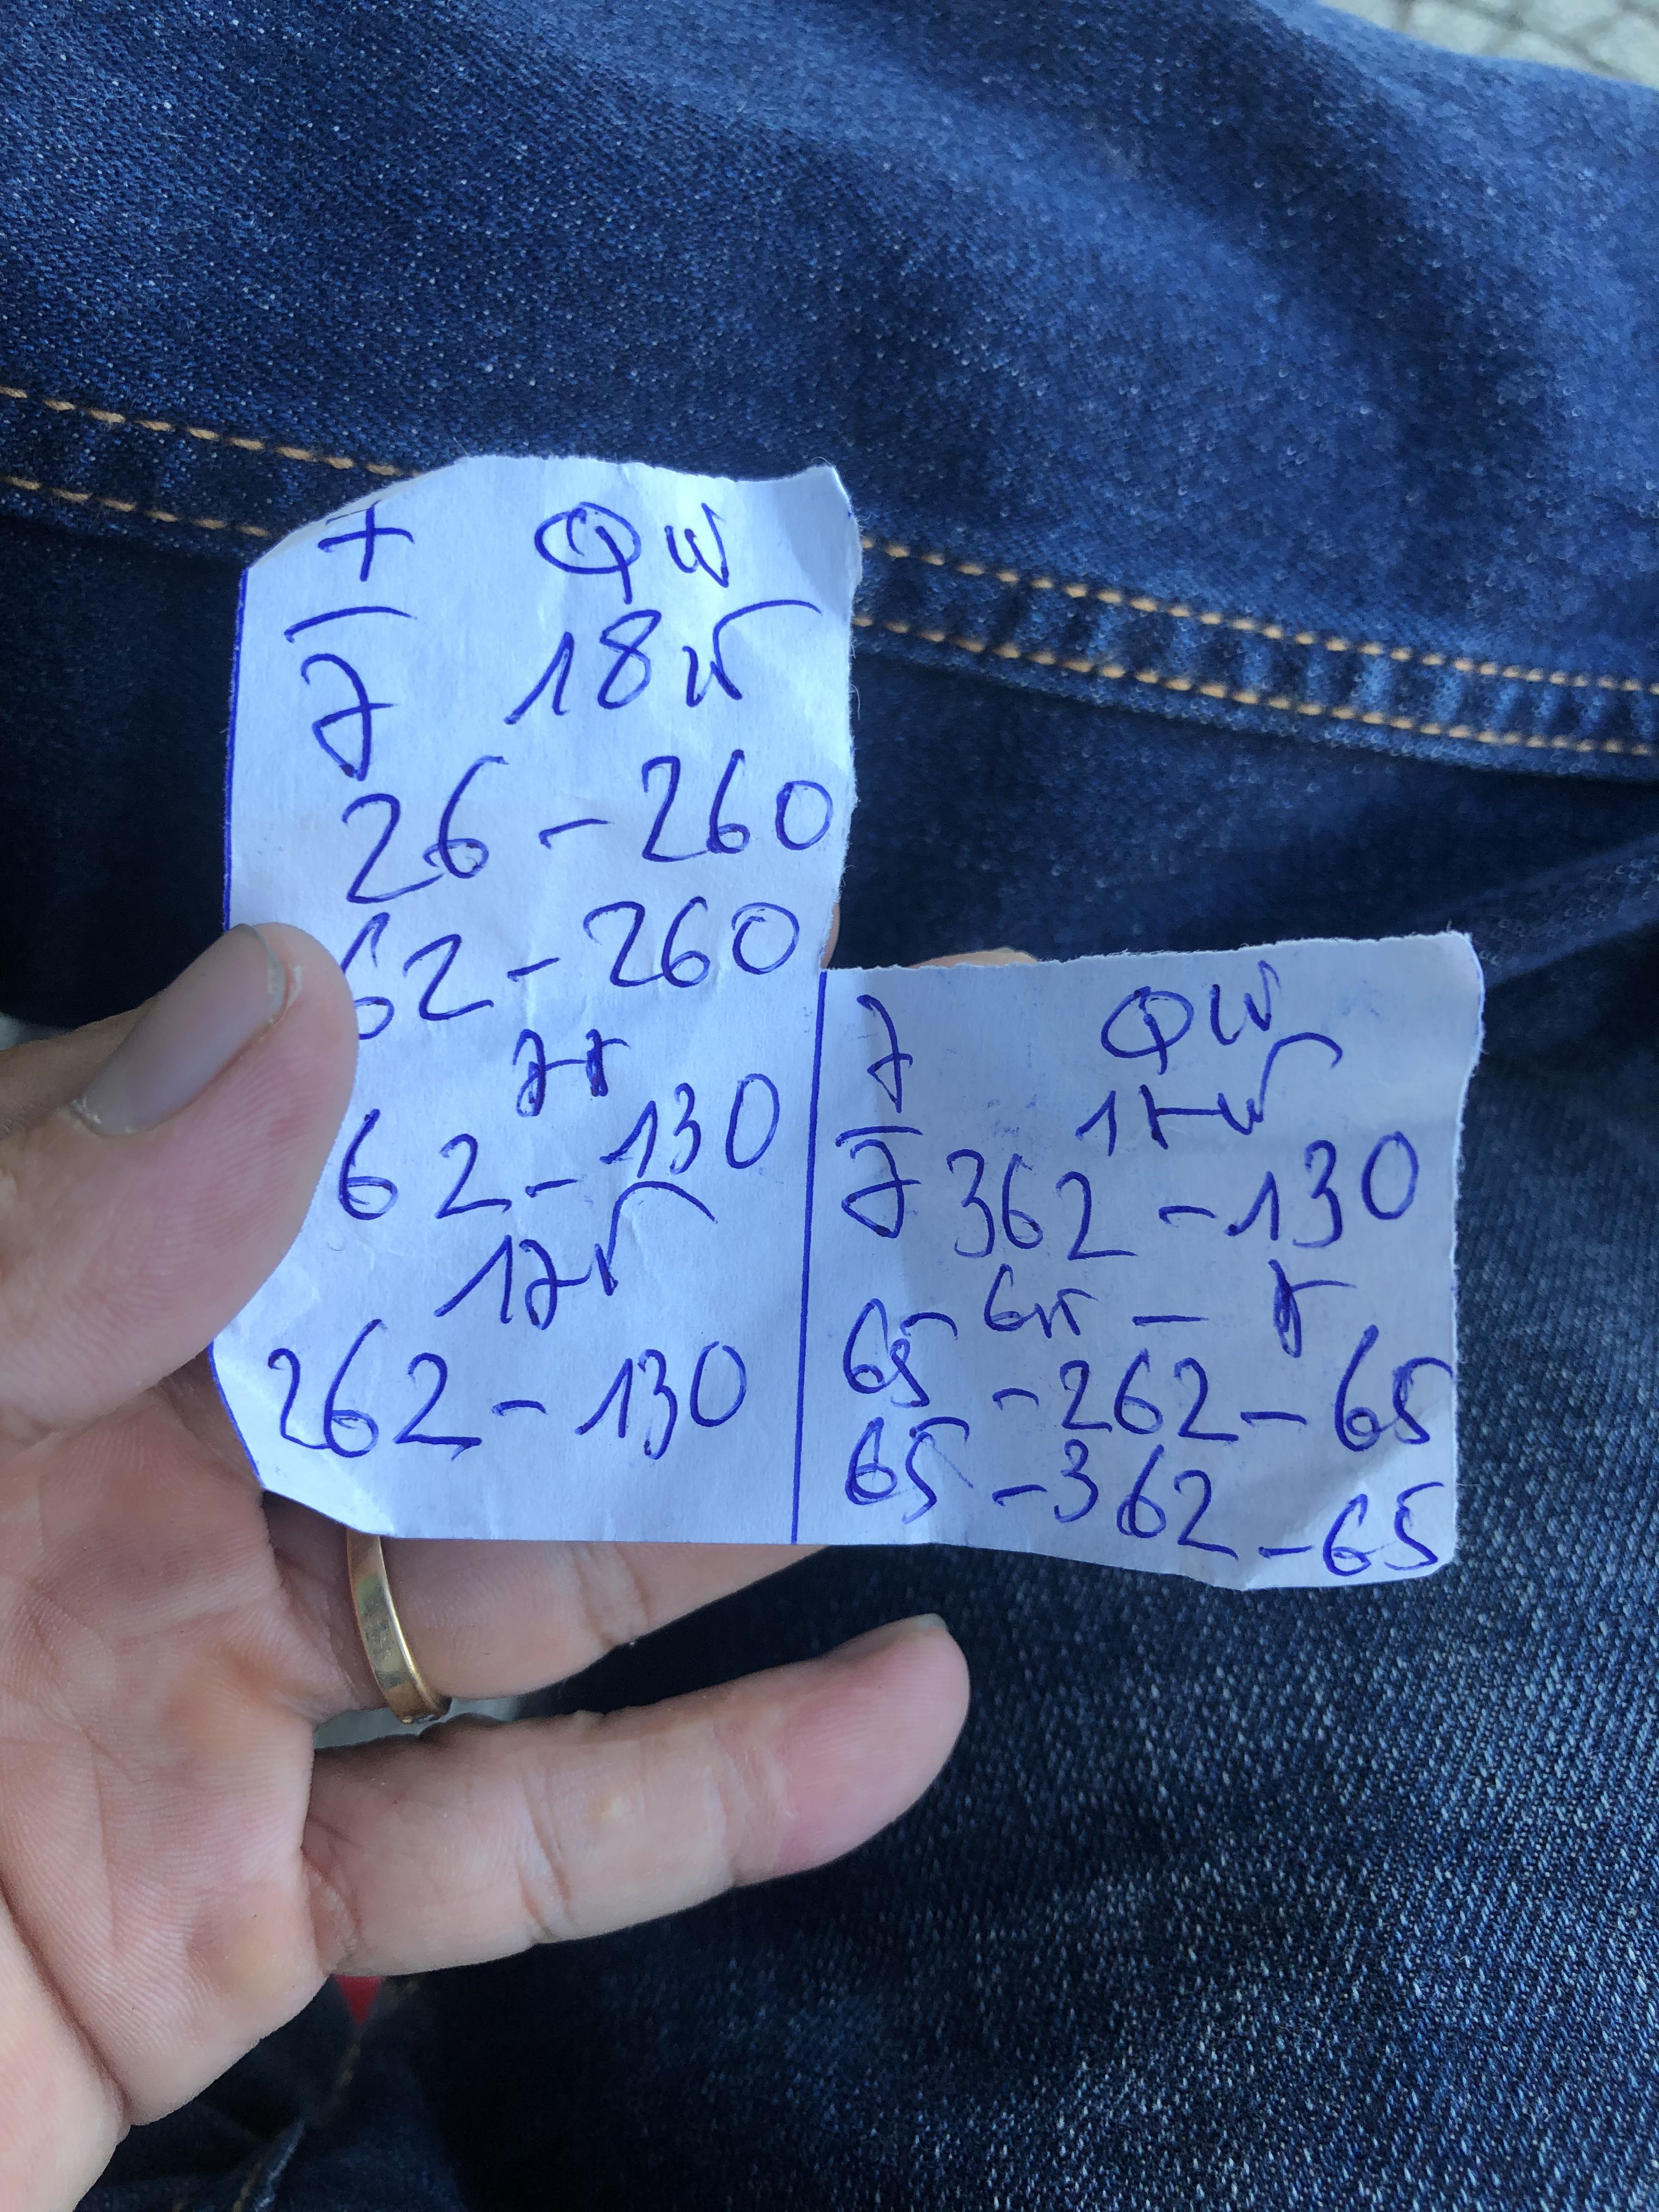 7 QW
7 18
26 - 260
62 - 260
62 - 130
17
262 - 130
7 QW
1
7 362 - 130
65 - 262 - 65
65 - 362 - 65